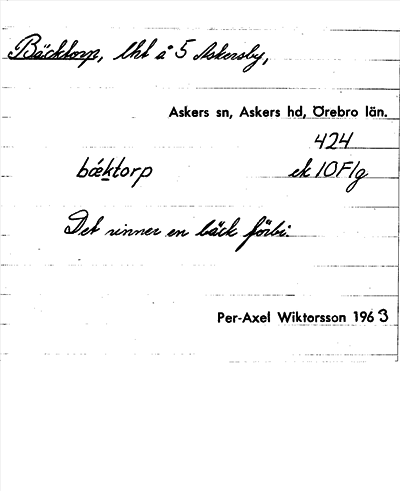 Bäcktorp, lht å 5 Askersby,
Askers sn, Askers hd, Örebro län.
424
bæktorp ek 10F1g
Det rinner en bäck förbi.
Per-Axel Wiktorsson 1963